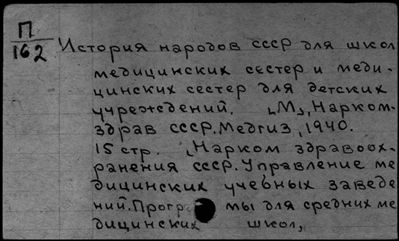 П
162
История народов СССР для школ
медицинских сестер и меди-
цинских сестер для детских
учреждений. [М], Нарком-
здрав СССР, Медгиз, 1940.
15 стр. [Нарком здравоох-
ранения СССР. Управление ме
дицинских учебных заведе
ний. Прогр мы для средних ме
дицинских школ,